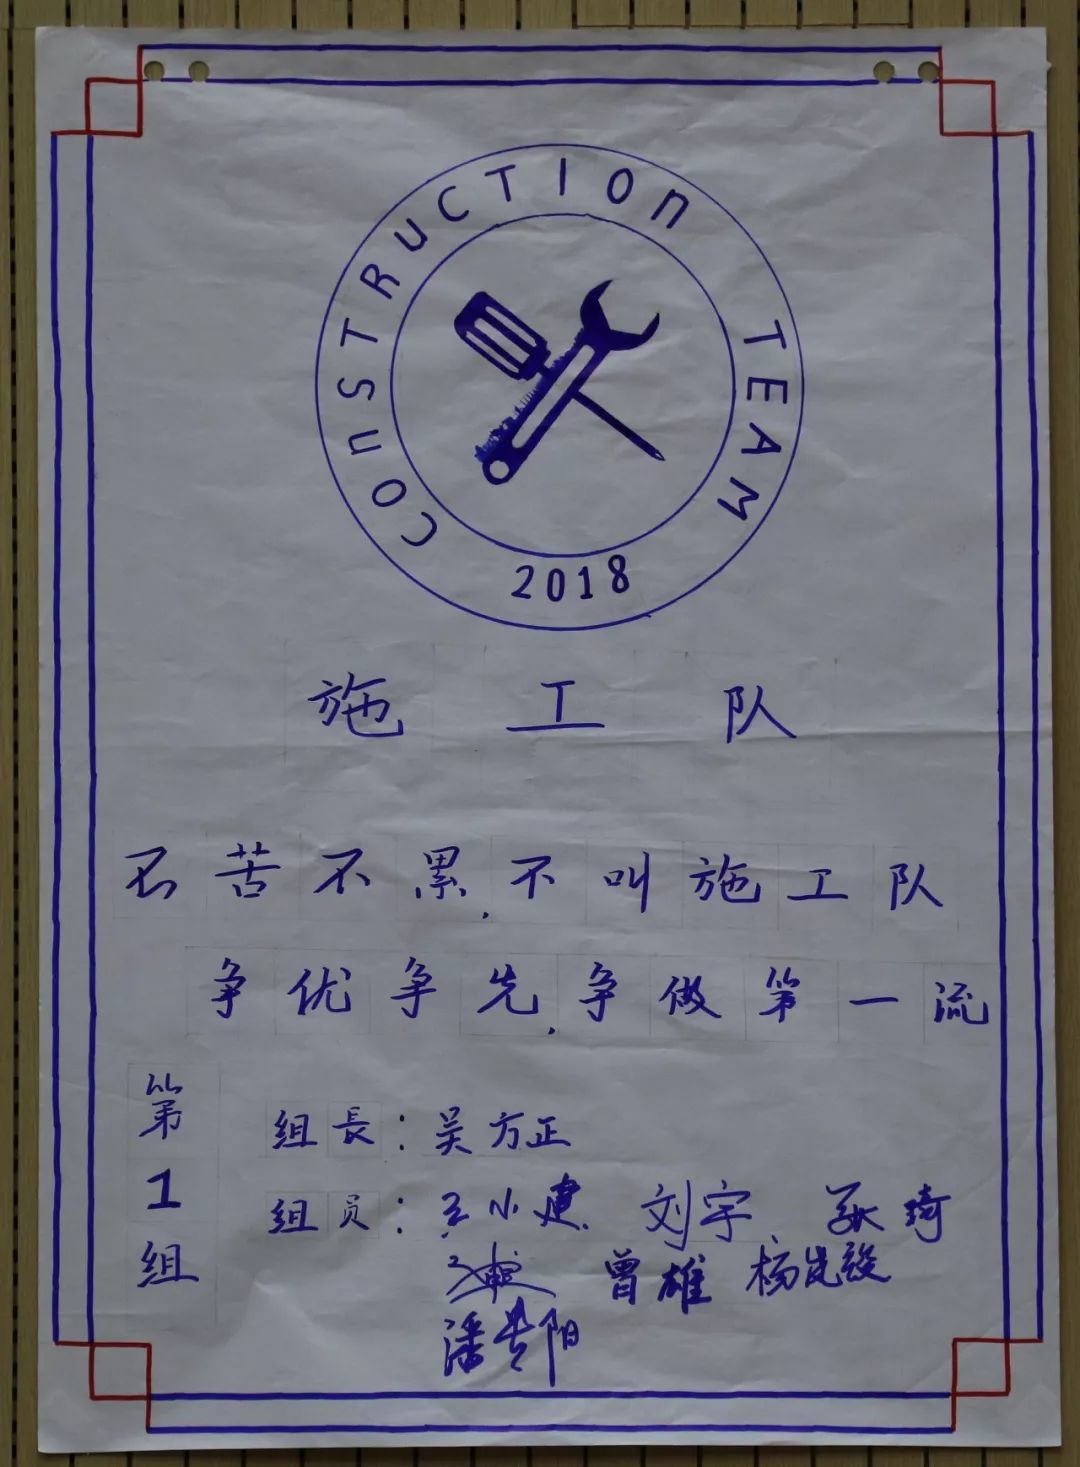 CONSTRUCTION TEAM
2018
施工队
不苦不累,不叫施工队
争优争先,争做第一流
第1组
组長:吴方正
组员:王小建 刘宇 张琦
曾雄
潘贵阳